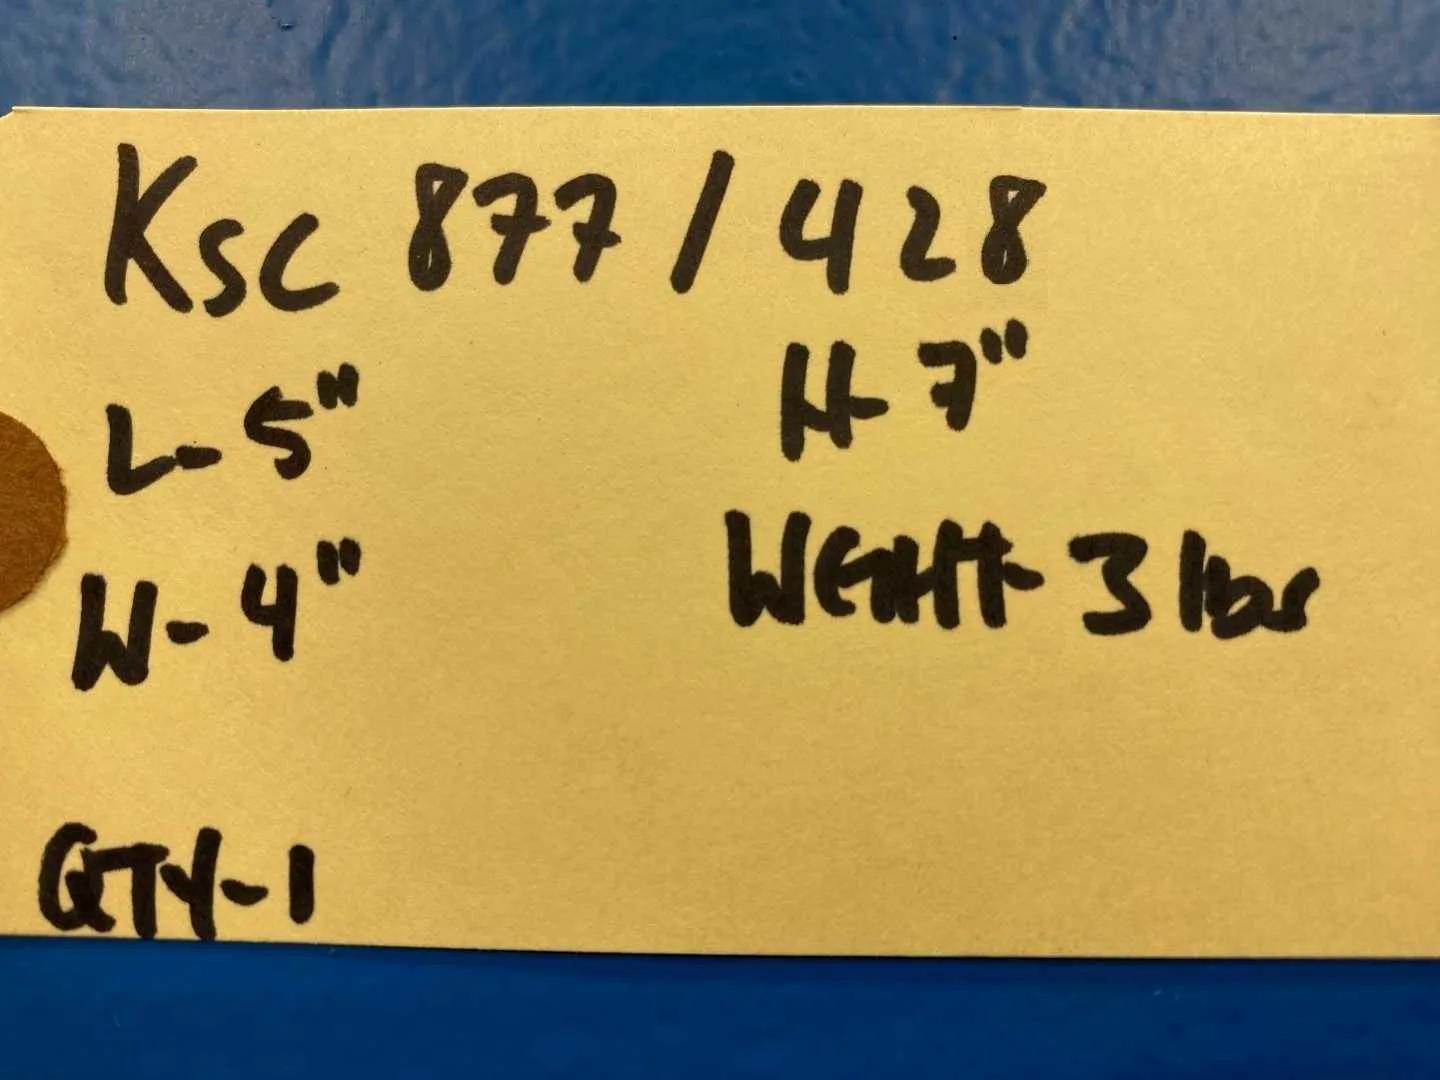 KSC 877 / 428
L- 5" H- 7"
W- 4" WEIHT- 3 lbs
QTY-1